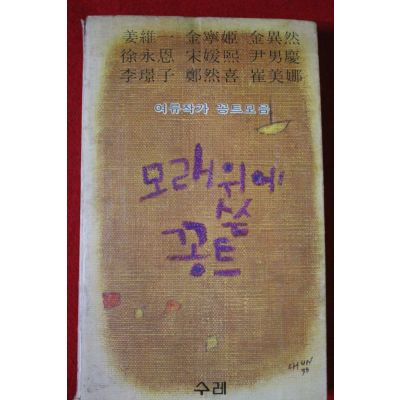 姜維一 金寧姬 金異然
徐永恩 宋媛熙 尹男慶
李璟子 鄭然喜 崔美娜
여류작가 꽁트모음
모래위에
쓴
꽁트
수레